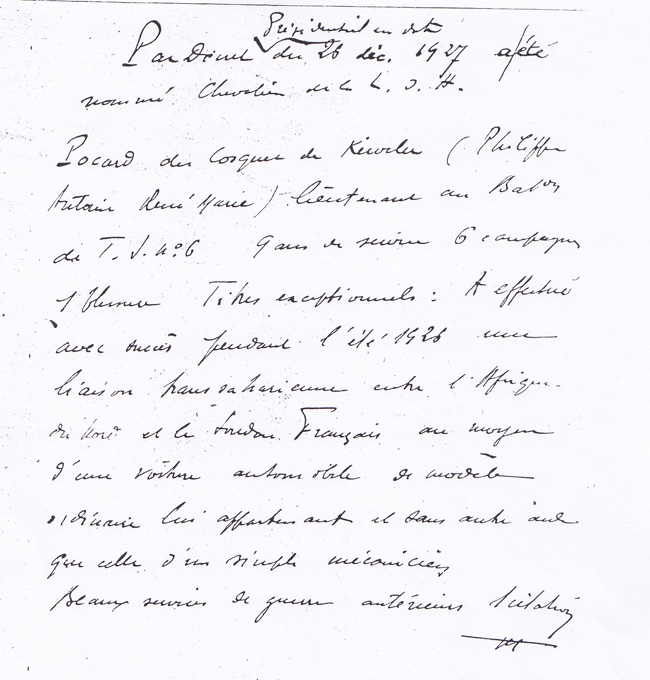 Présidentiel en date
Par Décret du 26 déc. 1927 a été
nommé Chevalier de la L. d. H.
Pocard du Cosquer de Kerviler (Philippe
Antoine René Marie) lieutenant au Baton
de T. S. no 6 9 ans de service 6 campagnes
1 blessure Titres exceptionnels : A effectué
avec succès pendant l'été 1926 une
liaison transsaharienne entre l'Afrique
du Nord et le Soudan Français au moyen
d'une voiture automobile de modèle
ordinaire lui appartenant et sans autre aide
que celle d'un simple mécanicien
Beaux services de guerre antérieurs 1 citation